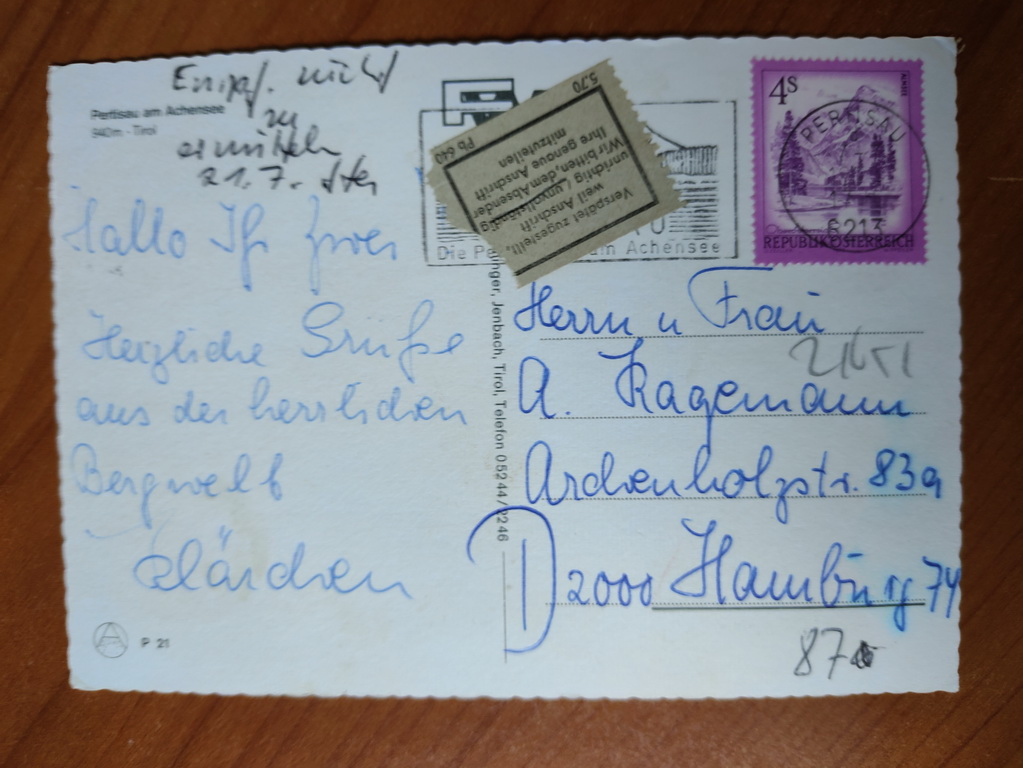 Pertisau am Achensee
940m - Tirol
Empf. nicht
zu
ermitteln
21.7.
Hallo Ihr zwei
Herzliche Grüße
aus der herrlichen
Bergwelt
Clärchen
P 21
5.70
Pb 640
Verspätet zugestellt,
weil Anschrift
unrichtig / unvollständig
Wir bitten, dem Absender
Ihre genaue Anschrift
mitzuteilen
Die Pe
am Achensee
4S
PERTISAU
6213
REPUBLIK ÖSTERREICH
inger, Jenbach, Tirol, Telefon 05244/2246
Herrn u Frau
A. Kagemann
Archenholzstr. 83a
D 2000 Hamburg 74
87a